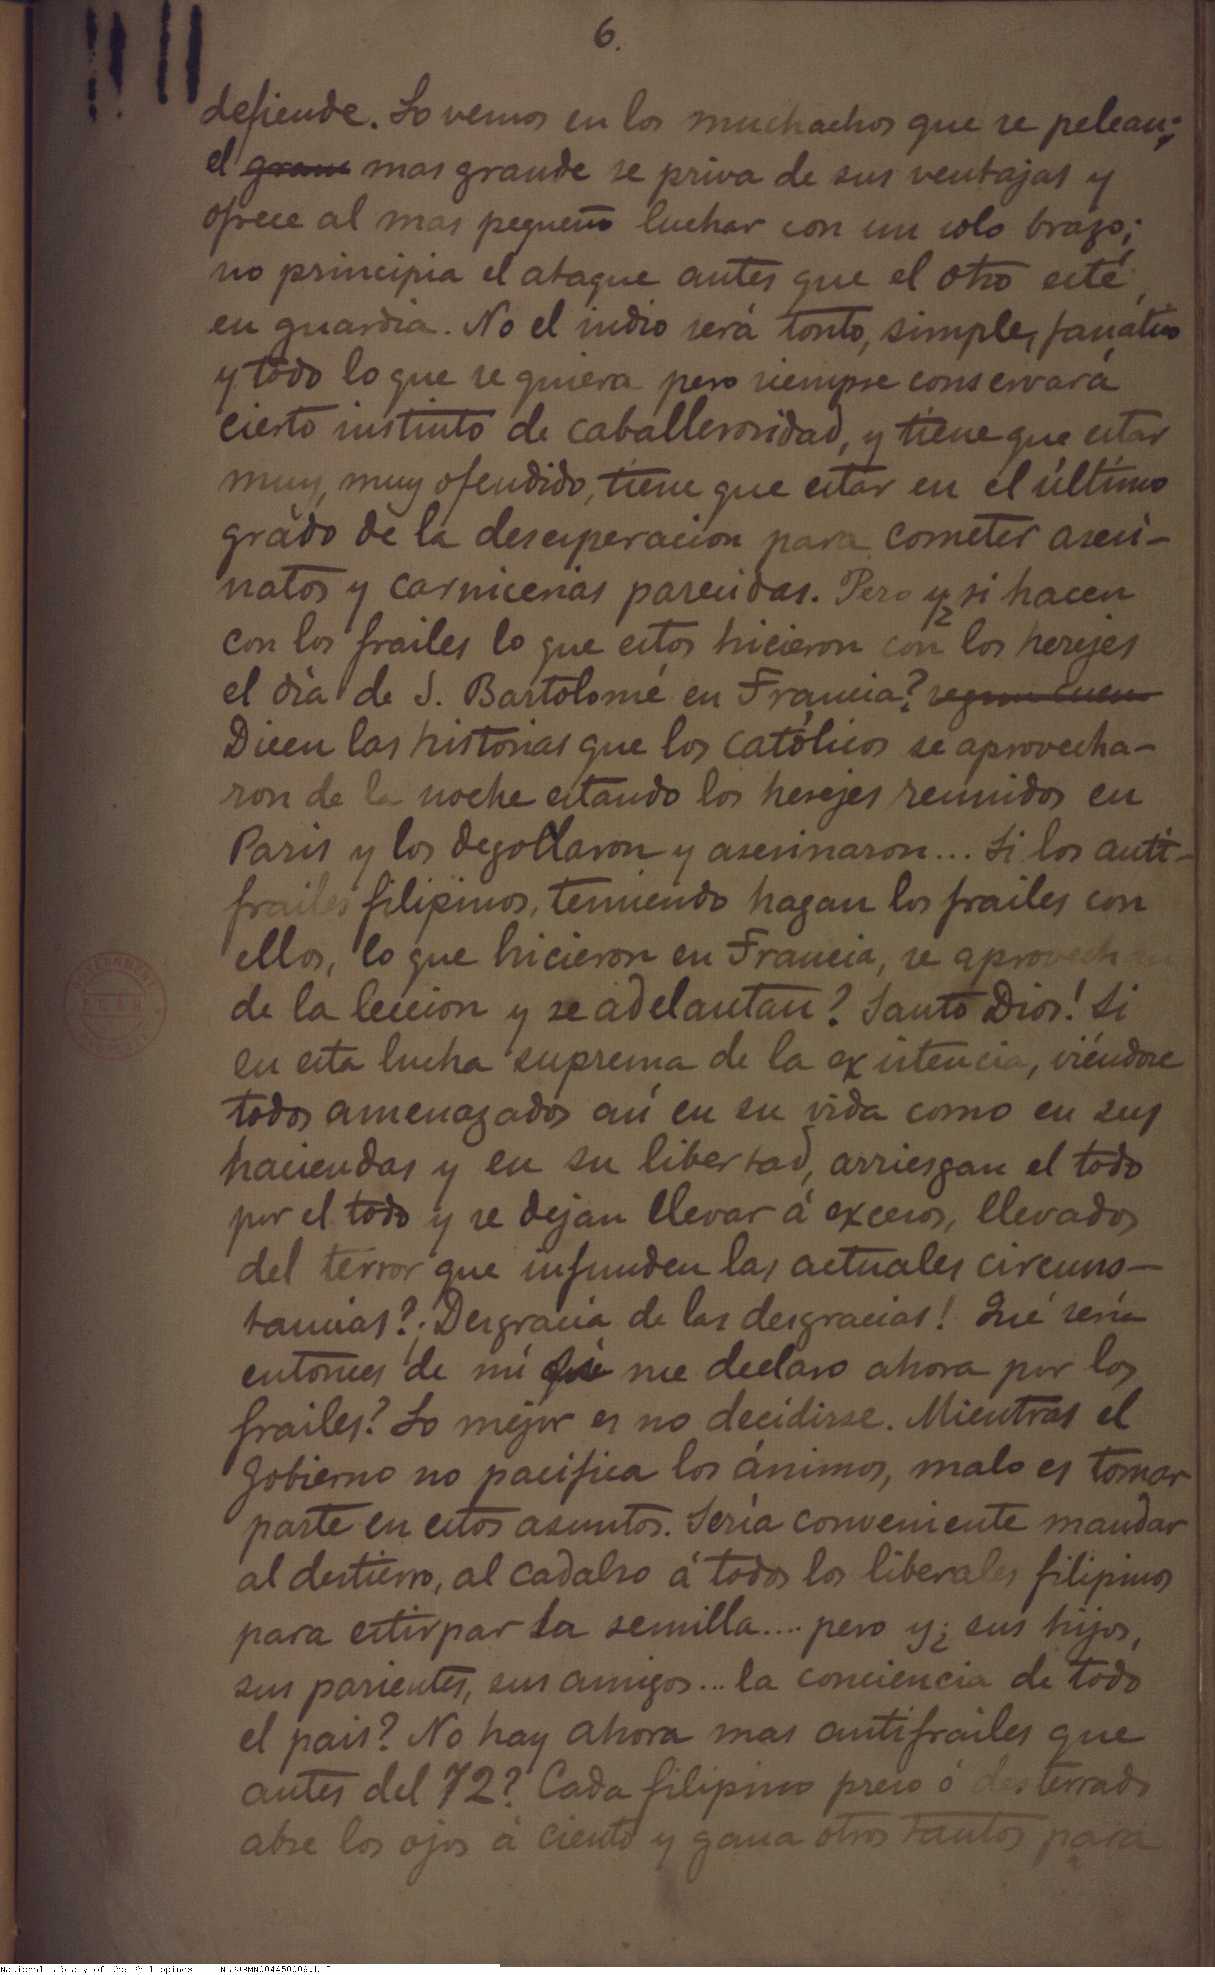 6.
defiende. Lo vemos en los muchachos que se pelean;
el gran mas grande se priva de sus ventajas y
ofrece al mas pequeño luchar con un solo brazo;
no principia el ataque antes que el otro esté
en guardia. No el indio será tonto, simple, fanático
y todo lo que se quiera pero siempre conservará
cierto instinto de caballerosidad, y tiene que estar
muy, muy ofendido, tiene que estar en el último
grado de la desesperacion para cometer asesi-
natos y carnicerias parecidas. Pero y ¿si hacen
con los frailes lo que estos hicieron con los herejes
el dia de S. Bartolomé en Francia? segun cuen
Dicen las historias que los católicos se aprovecha-
ron de la noche estando los herejes reunidos en
Paris y los degollaron y asesinaron... Si los anti-
frailes filipinos, temiendo hagan los frailes con
ellos, lo que hicieron en Francia, se aprovechan
de la leccion y se adelantan? Santo Dios! Si
en esta lucha suprema de la existencia, viéndose
todos amenazados así en su vida como en sus
haciendas y en su libertad, arriesgan el todo
por el todo y se dejan llevar á excesos, llevados
del terror que infunden las actuales circuns-
tancias? ¡Desgracia de las desgracias! Qué sería
entonces de mí que me declaro ahora por los
frailes? Lo mejor es no decidirse. Mientras el
Gobierno no pacifica los ánimos, malo es tomar
parte en estos asuntos. Sería conveniente mandar
al destierro, al cadalso á todos los liberales filipinos
para estirpar la semilla.... pero y ¿sus hijos,
sus parientes, sus amigos... la conciencia de todo
el pais? No hay ahora mas antifrailes que
antes del 72? Cada filipino preso ó desterrado
abre los ojos á ciento y gana otros tantos para
National Library of the Philippines